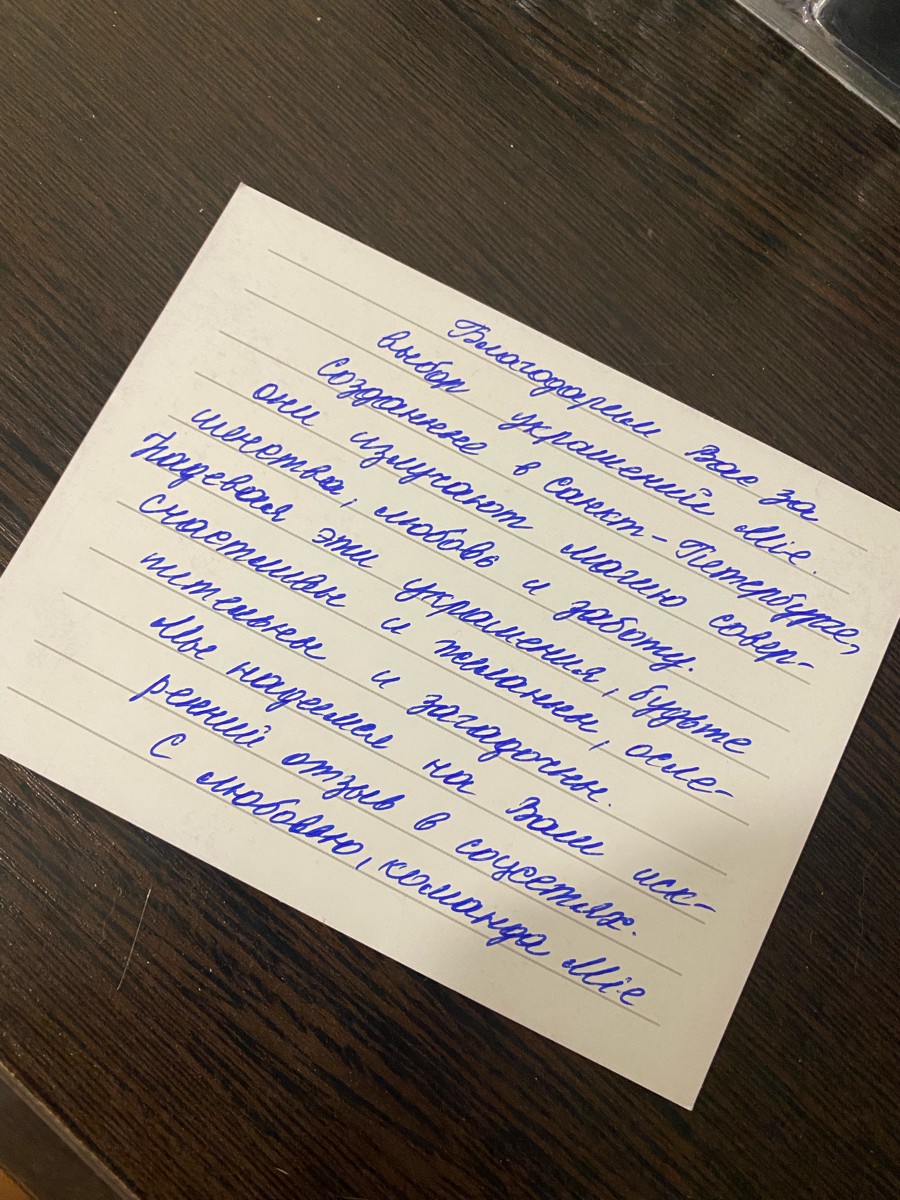 Благодарим Вас за
выбор украшений Mie.
Созданные в Санкт-Петербурге,
они излучают магию совер-
шенства, любовь и заботу.
Надевая эти украшения, будьте
счастливы и желанны, осле-
пительны и загадочны.
Мы надеемся на Ваш иск-
ренний отзыв в соцсетях.
С любовью, команда Mie